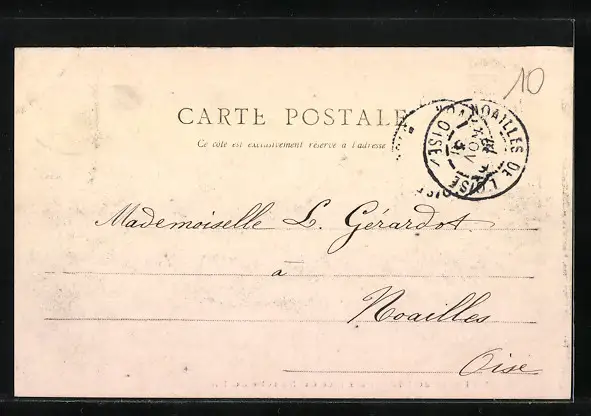 10
CARTE POSTALE
Ce côté est exclusivement réservé à l'adresse
NOAILLES DE L'OISE
OISE
NOV
Mademoiselle L. Gérardot.
a
Noailles
Oise